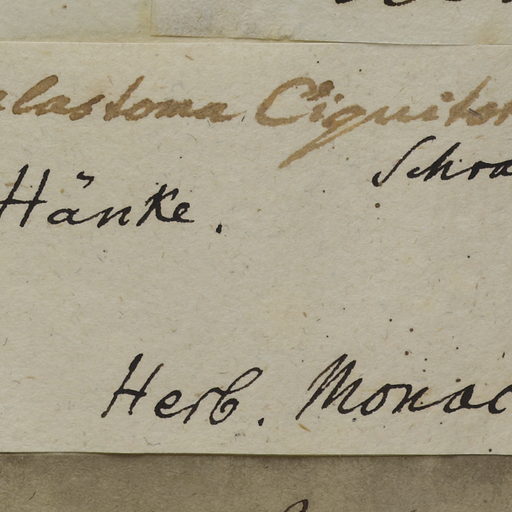 alastoma Ciquitor
Schra
Hänke.
Herb. Monac